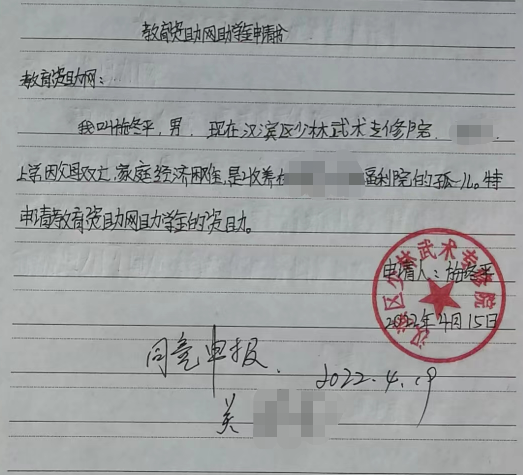 教育资助网助学金申请书
教育资助网：
我叫施冬平，男，现在汉滨区少林武术专修院
上学因父母双亡，家庭经济困难，是收养在 福利院的孤儿。特
申请教育资助网助学金的资助。
申请人：施冬平
2022年4月15日
汉滨区少林武术专修院
同意申报.
2022.4.19